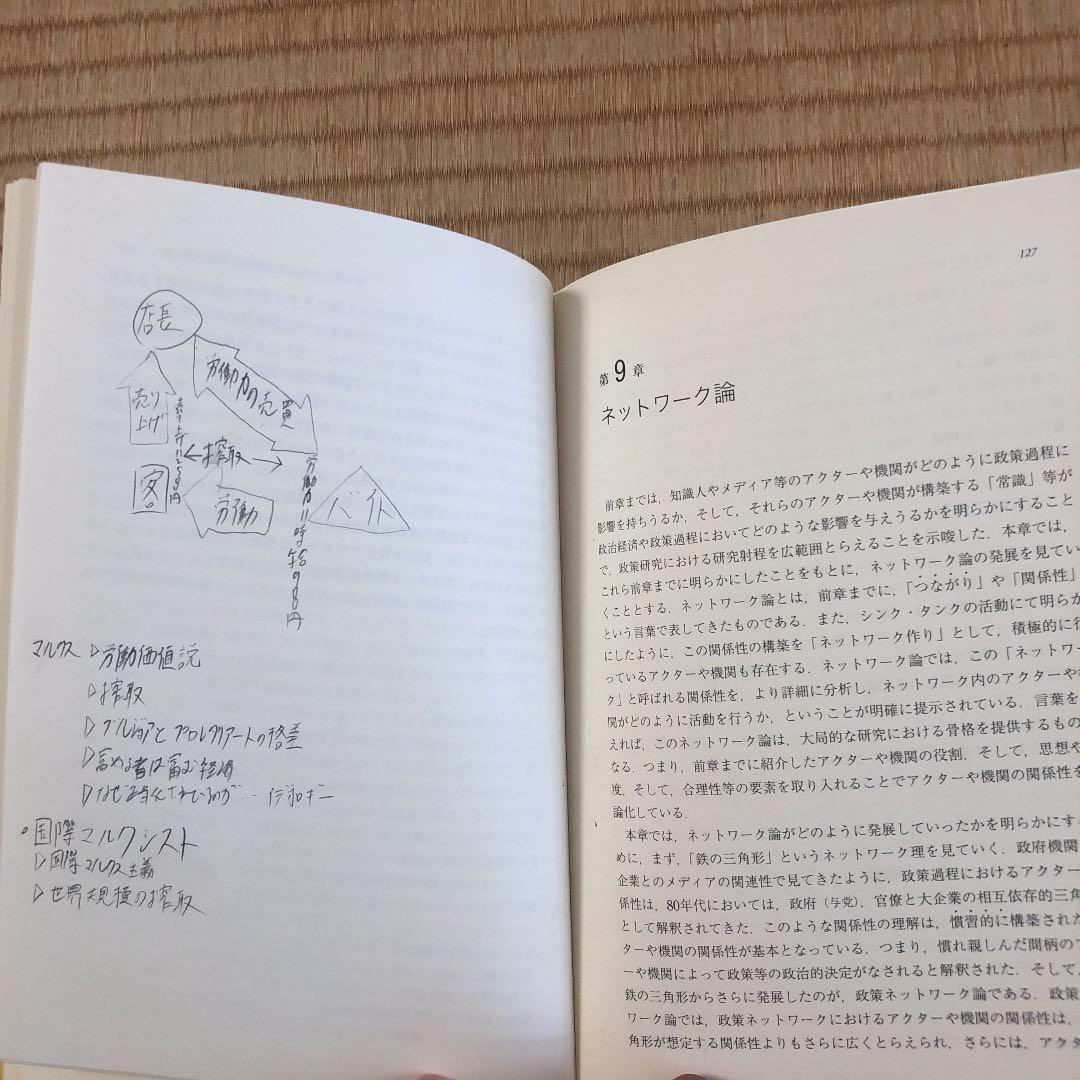 店長
労働力の売買
売り
上げ
搾取
客
労働
バイト
マルクス ▷労働価値説
▷搾取
▷ブルジョアとプロレタリアートの格差
▷富める者は富む経済
▷なぜ
○国際マルクシスト
▷国際マルクス主義
▷世界大規模の搾取
127
第9章
ネットワーク論
前章までは,知識人やメディア等のアクターや機関がどのように政策過程に
影響を持ちうるか,そして,それらのアクターや機関が構築する「常識」等が
政治経済や政策過程においてどのような影響を与えうるかを明らかにすること
で,政策研究における研究射程を広範囲とらえることを示唆した.本章では,
これら前章までに明らかにしたことをもとに,ネットワーク論の発展を見てい
くこととする.ネットワーク論とは,前章までに,「つながり」や「関係性」
という言葉で表してきたものである.また,シンク・タンクの活動にて明らか
にしたように,この関係性の構築を「ネットワーク作り」として,積極的に行
っているアクターや機関も存在する.ネットワーク論では,この「ネットワー
ク」と呼ばれる関係性を,より詳細に分析し,ネットワーク内のアクターや機
関がどのように活動を行うか,ということが明確に提示されている.言葉を
えれば,このネットワーク論は,大局的な研究における骨格を提供するもの
なる.つまり,前章までに紹介したアクターや機関の役割.そして,思想や
度,そして,合理性等の要素を取り入れることでアクターや機関の関係性を
論化している.
本章では,ネットワーク論がどのように発展していったかを明らかにす
めに,まず,「鉄の三角形」というネットワーク理を見ていく.政府機関
企業とのメディアの関連性で見てきたように,政策過程におけるアクター
係性は,80年代においては,政府(与党),官僚と大企業の相互依存的三角
として解釈されてきた.このような関係性の理解は,慣習的に構築された
ターや機関の関係性が基本となっている.つまり,慣れ親しんだ間柄の
ーや機関によって政策等の政治的決定がなされると解釈された.そして,
鉄の三角形からさらに発展したのが,政策ネットワーク論である.政策
ワーク論では,政策ネットワークにおけるアクターや機関の関係性は,
角形が想定する関係性よりもさらに広くとらえられ,さらには,アクタ